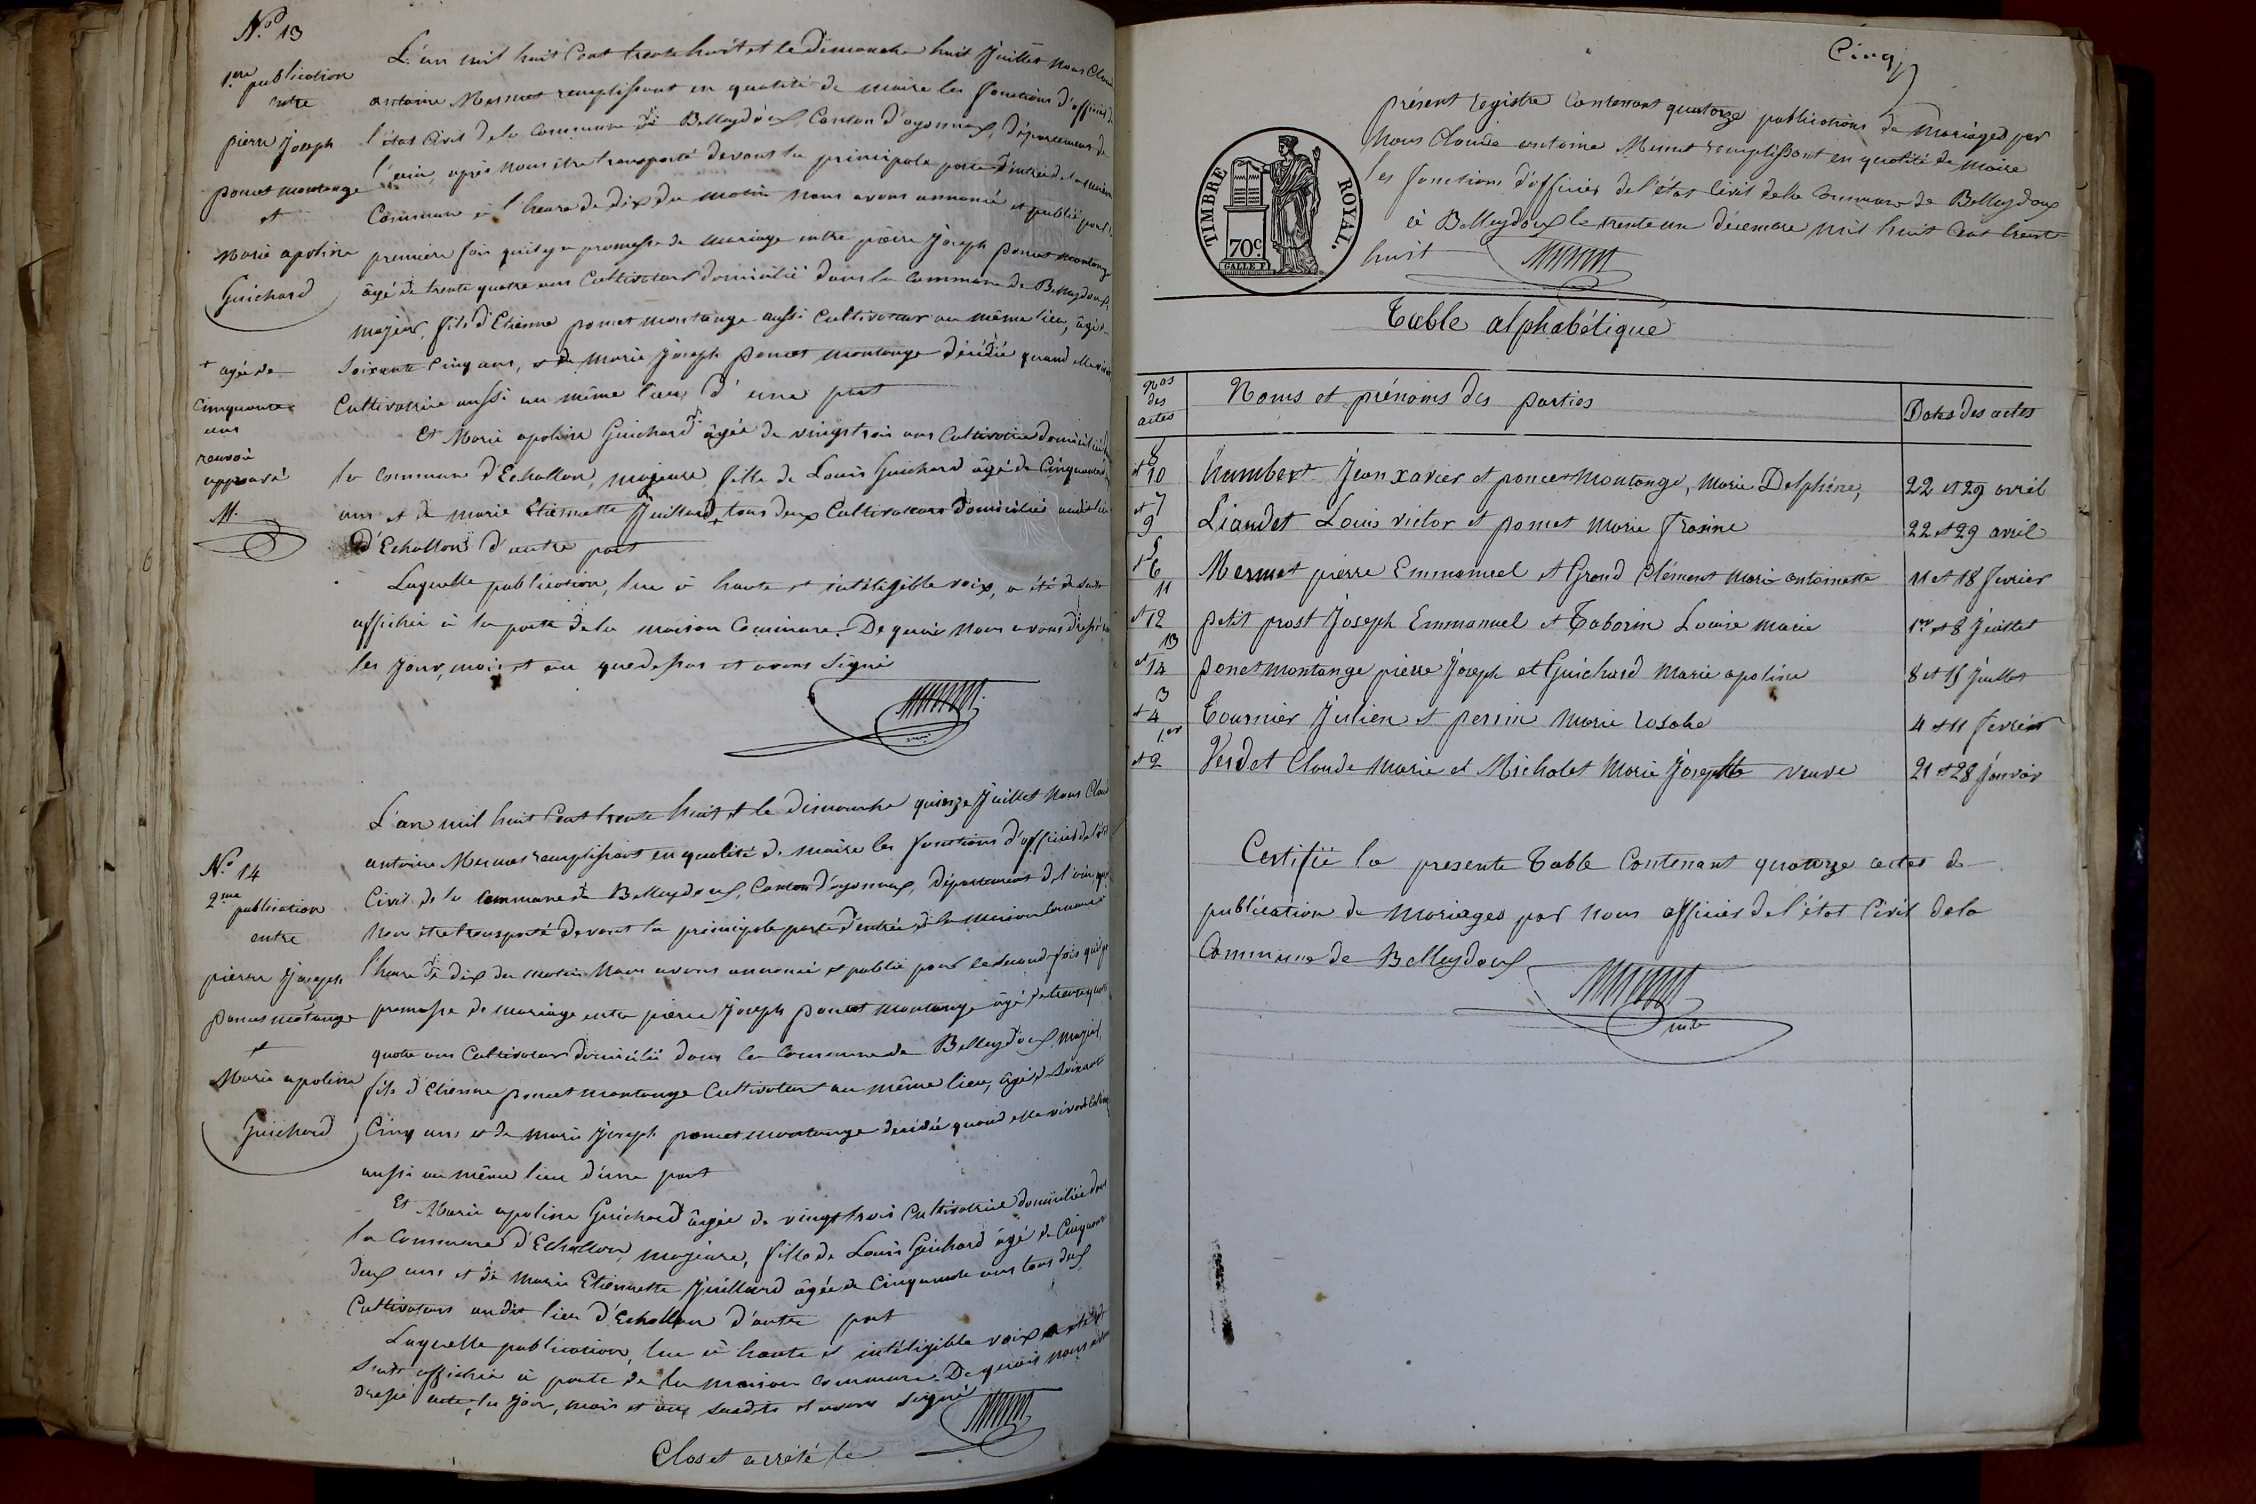 N.o 13
1.ere publication
entre
pierre Joseph
poncet montange
et
Marie apoline
Guichard
+ agée de
cinquante
ans
renvoi
approuvé
M.
L'an mil huit Cent trente huit et le Dimanche huit Juillet nous Claude
antoine Mermet remplissant en qualité de maire les fonctions d'officier de
l'état Civil de la Commune de Belleydoux, Canton d'oyonnax, Département de
l'ain, après nous être transporté devant la principale porte d'entrée de la maison
Commune à l'heure de dix du matin nous avons annoncé et publié pour la
première fois qu'il y a promesse de mariage entre pierre Joseph poncet montange
âgé de trente quatre ans Cultivateur domicilié dans la Commune de Belleydoux,
majeur, fils d'Etienne poncet montange aussi Cultivateur au même lieu, âgé de
soixante Cinq ans, et de Marie Joseph poncet montange décédée quand elle vivait
Cultivatrice aussi au même lieu, d'une part
Et Marie apoline Guichard âgée de vingt trois ans Cultivatrice domiciliée dans
la Commune d'Echallon, majeure, fille de Louis Guichard âgé de Cinquante
ans et de Marie Etiennette Juillard + tous deux Cultivateurs domiciliés audit lieu
d'Echallon d'autre part
Laquelle publication, lue à haute et intéligible voix, a été de suite
affichée à la porte de la maison Commune. De quoi nous avons dressé
les Jour, mois et an que dessus et avons signé
N.o 14
2.me publication
entre
pierre Joseph
poncet motange
et
Marie apoline
Guichard
L'an mil huit Cent trente huit et le dimanche quinze Juillet nous Claude
antoine Mermet remplissant en qualité de maire les fonctions d'officier de l'état
Civil de la Commune de Belleydoux, Canton d'oyonnax, Département de l'ain, après
nous être transporté devant la principale porte d'entrée de la maison Commune à
l'heure de dix du matin nous avons annoncé et publié pour la seconde fois qu'il y a
promesse de mariage entre pierre Joseph poncet montange âgé de trente quatre
quatre ans Cultivateur domicilié dans la Commune de Belleydoux, majeur,
fils d'Etienne poncet montange Cultivateur au même lieu, âgé de soixante
Cinq ans et de Marie Joseph poncet montange décédée quand elle vivait
aussi au même lieu d'une part
Et Marie apoline Guichard âgée de vingt trois Cultivatrice domiciliée dans
la Commune d'Echallon, majeure, fille de Louis Guichard âgé de Cinquante
deux ans et de Marie Etiennette Juillard âgée de Cinquante ans tous deux
Cultivateurs audit lieu d'Echallon d'autre part
Laquelle publication, lue à haute et intéligible voix a été de
suite affichée à porte de la maison Commune. De quoi nous avons
dressé acte, les Jour, mois et an susdits et avons signé
Clos et arrêté le
Cinq
présent registre Contenant quatorze publications de Mariages par
Nous Claude antoine Mermet remplissant en qualité de maire
les fonctions d'officier de l'état Civil de la Commune de Belleydoux
à Belleydoux le trente un décembre mil huit Cent trente
huit
TIMBRE ROYAL.
70c.
Table alphabétique
Nos des actes
Noms et prénoms des parties
Dates des actes
8 et 10 humbert Jean xavier et poncet Montange, Marie Delphine, 22 et 29 avril
7 et 9 Liaudet Louis victor et poncet Marie frosine 22 et 29 avril
5 et 6 Mermet pierre Emmanuel et Grand Clément Marie antoinette 11 et 18 fevrier
11 et 12 petit prost Joseph Emmanuel et Taborin Louise Marie 1er et 8 Juillet
13 et 14 poncet montange pierre Joseph et Guichard Marie apoline 8 et 15 Juillet
3 et 4 Tournier Julien et perrin Marie rosalie 4 et 11 fevrier
1.er et 2 Verdet Claude Marie et Michalet Marie Josephte veuve 21 et 28 Janvier
Certifié la presente Table Contenant quatorze actes de
publication de Mariages par nous officier de l'état Civil de la
Commune de Belleydoux